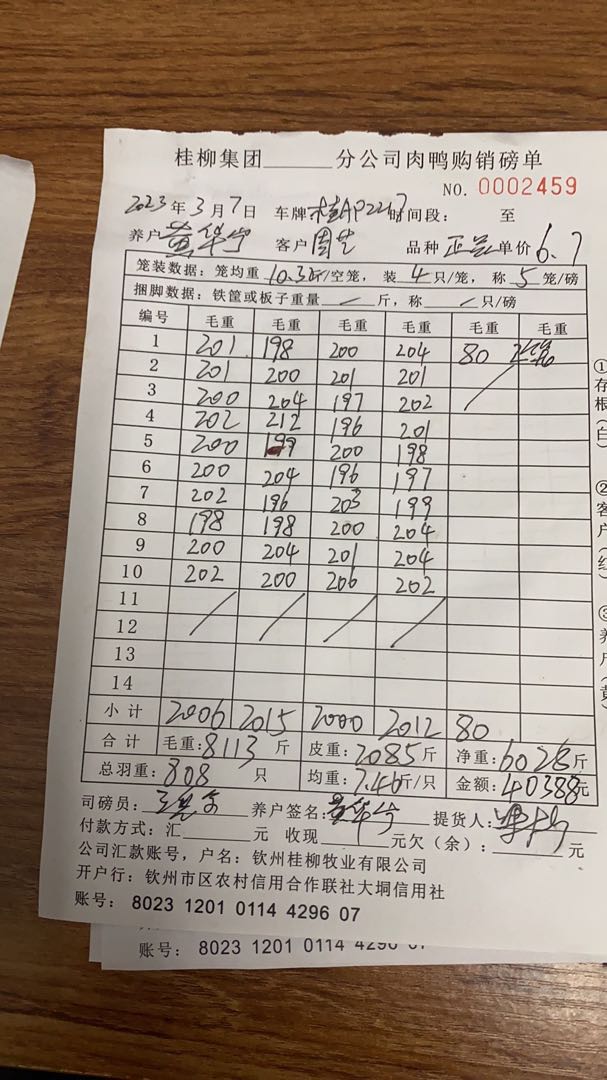 桂柳集团______分公司肉鸭购销磅单
NO. 0002459
2023年3月7日 车牌桂AP2217时间段： 至
养户黄华兮 客户 品种 单价6.7
笼装数据：笼均重10.3斤/空笼，装4只/笼，称5笼/磅
捆脚数据：铁筐或板子重量／斤，称／只/磅
编号 毛重 毛重 毛重 毛重 毛重 毛重
1 201 198 200 204 80
2 201 200 201 201
3 200 204 197 202
4 202 212 196 201
5 200 199 200 198
6 200 204 196 197
7 202 196 203 199
8 198 198 200 204
9 200 204 201 204
10 202 200 206 202
11
12
13
14
小计 2006 2015 2000 2012 80
合计 毛重：8113斤 皮重：2085斤 净重：6028斤
总羽重：808只 均重：7.46斤/只 金额：40388元
司磅员： 养户签名：黄华兮 提货人：
付款方式：汇______元 收现______元欠（余）：______元
公司汇款账号，户名：钦州桂柳牧业有限公司
开户行：钦州市区农村信用合作联社大垌信用社
账号：8023 1201 0114 4296 07
账号：8023 1201 0114 4296 07
①存根（白）
②客户（红）
③养户（黄